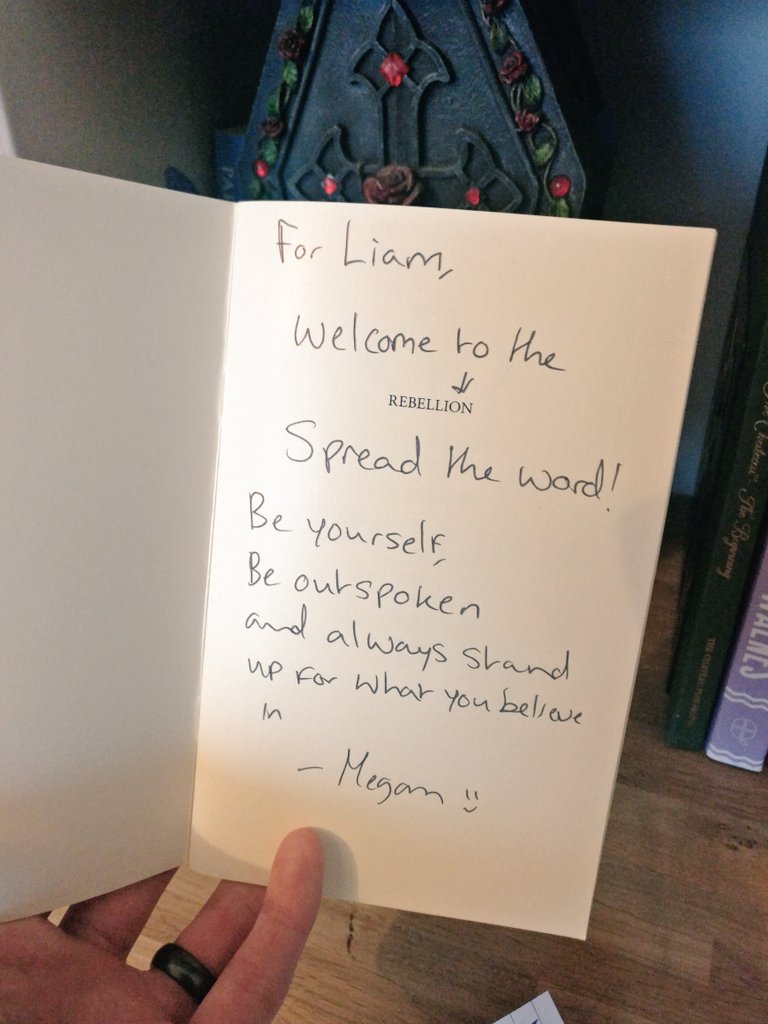 For Liam,
Welcome to the
REBELLION
Spread the word!
Be yourself,
Be outspoken
and always stand
up for what you believe
in
- Megan
The Beginning